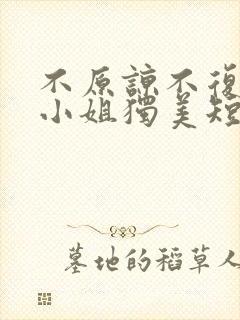 不原諒不復
小姐獨美短
墓地的稻草人